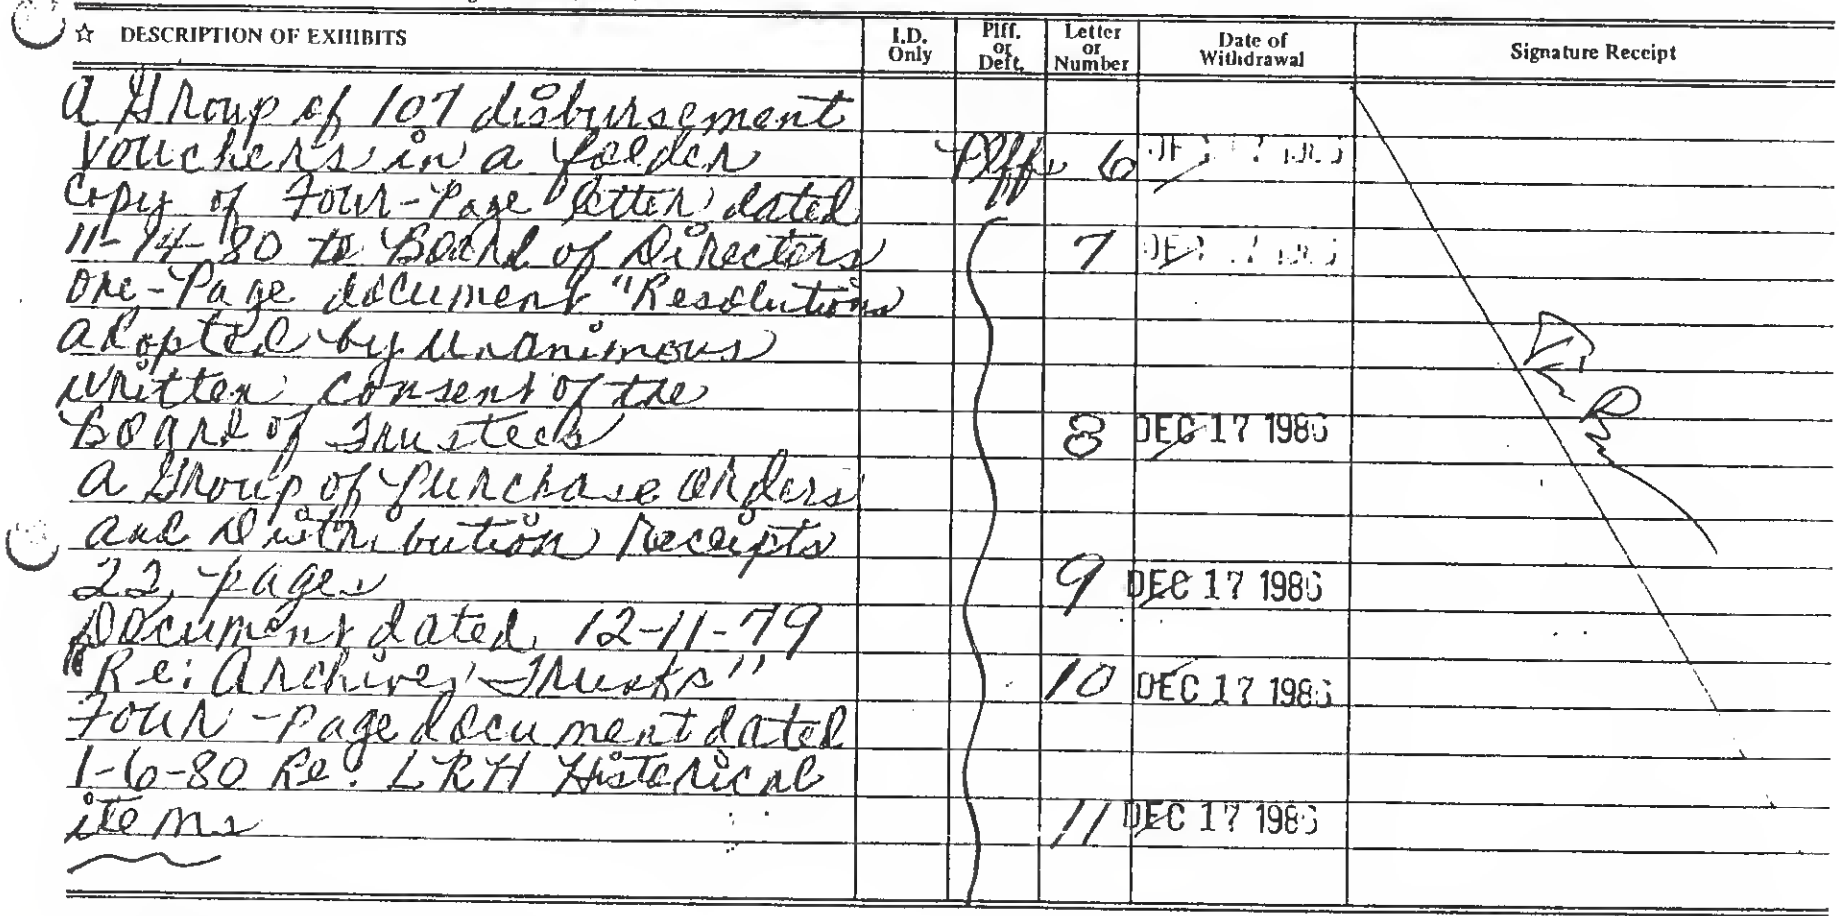 ☆ DESCRIPTION OF EXHIBITS I.D. Only Plff. or Deft. Letter or Number Date of Withdrawal Signature Receipt
A Group of 107 disbursement
vouchers in a folder Plff 6
Copy of Four-Page letter dated
11-14-80 to Board of Directors 7
One-Page document "Resolutions
adopted by unanimous
written consent of the
Board of Trustees 8 DEC 17 1986
A Group of Purchase orders
and Distribution Receipts
22 pages 9 DEC 17 1986
Document dated 12-11-79
"Re: Archives Trusts" 10 DEC 17 1986
Four-Page document dated
1-6-80 Re: LRH Historical
items 11 DEC 17 1986